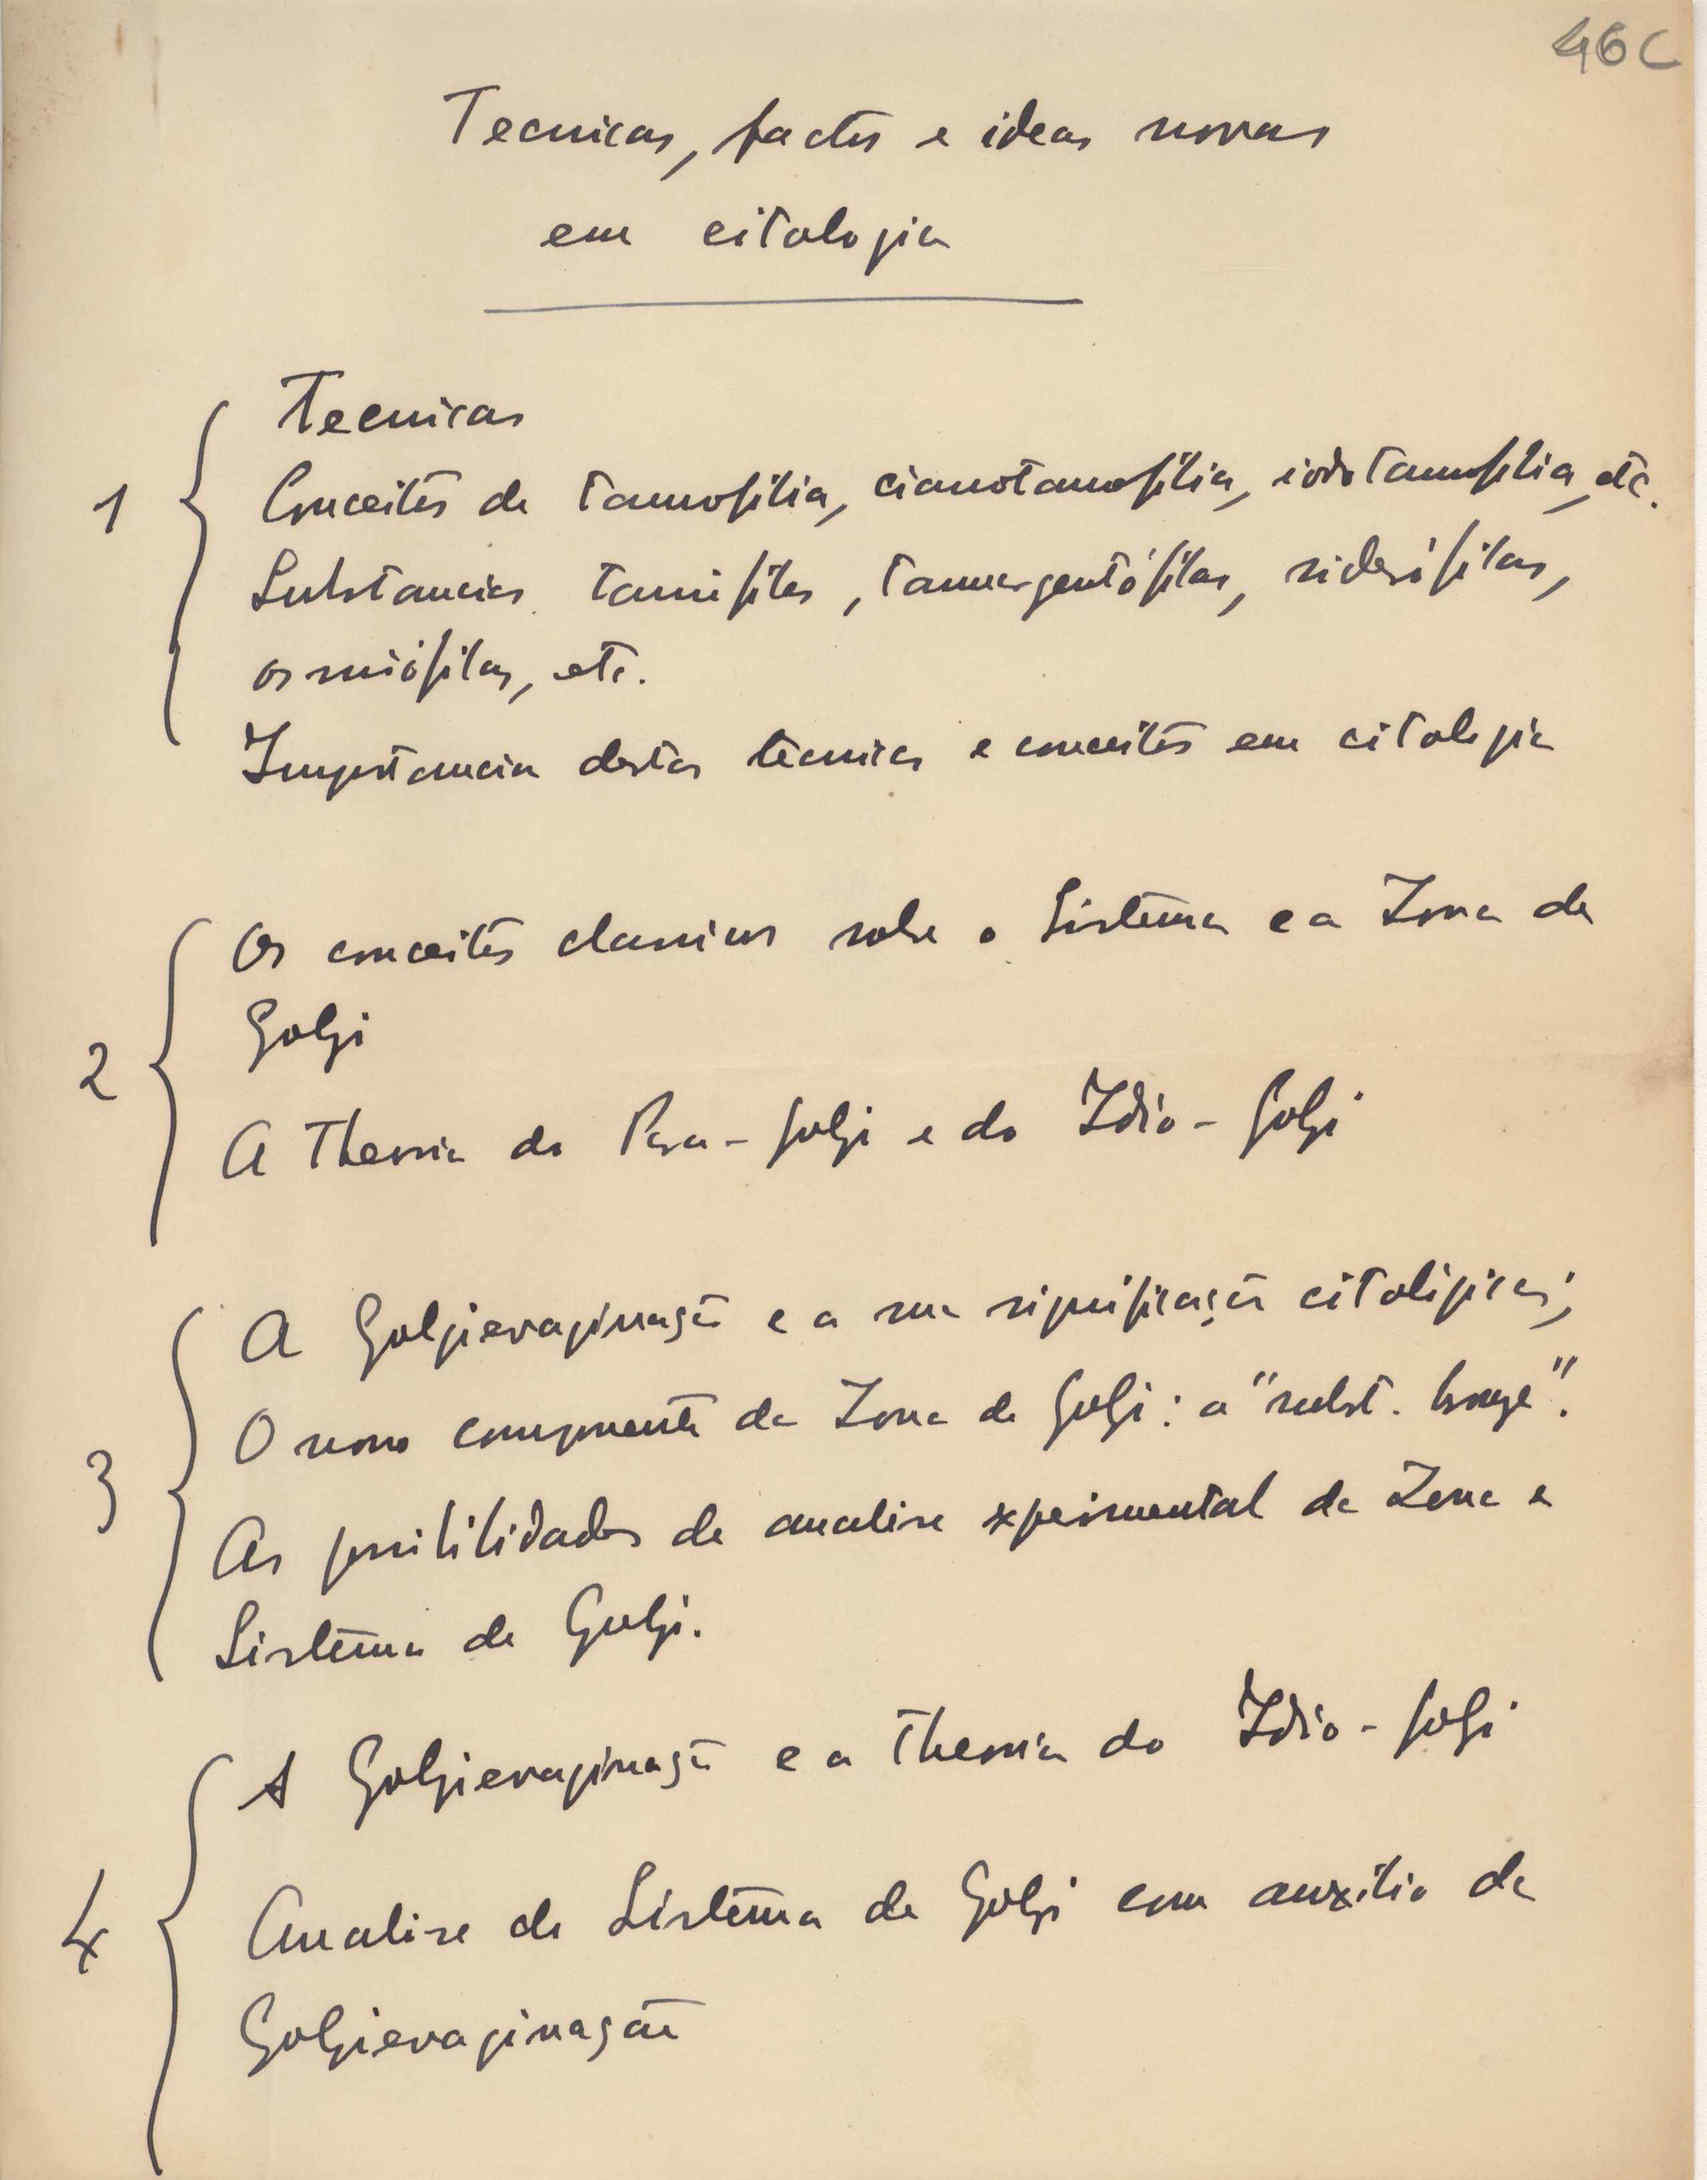 46C
Tecnicas, factos e ideas novas
em citologia
Tecnicas
1
Conceitos de tanofilia, cianotanofilia, iodotanofilia, etc.
Substancias tanófilas, tanargentófilas, siderófilas,
osmiófilas, etc.
Importancia destas técnicas e conceitos em citologia
Os conceitos classicos sobre o Sistema e a Zona de
Golgi
2
A Theoria do Para-golgi e do Idio-golgi
A Golgievaginação e a sua significação citológica;
O novo componente da Zona de Golgi: a "subst.
3
As possibilidades de analise experimental da Zona e
Sistema de Golgi.
A Golgievaginação e a theoria do Idio-golgi
4
Analise do Sistema de Golgi com auxilio da
Golgievaginação